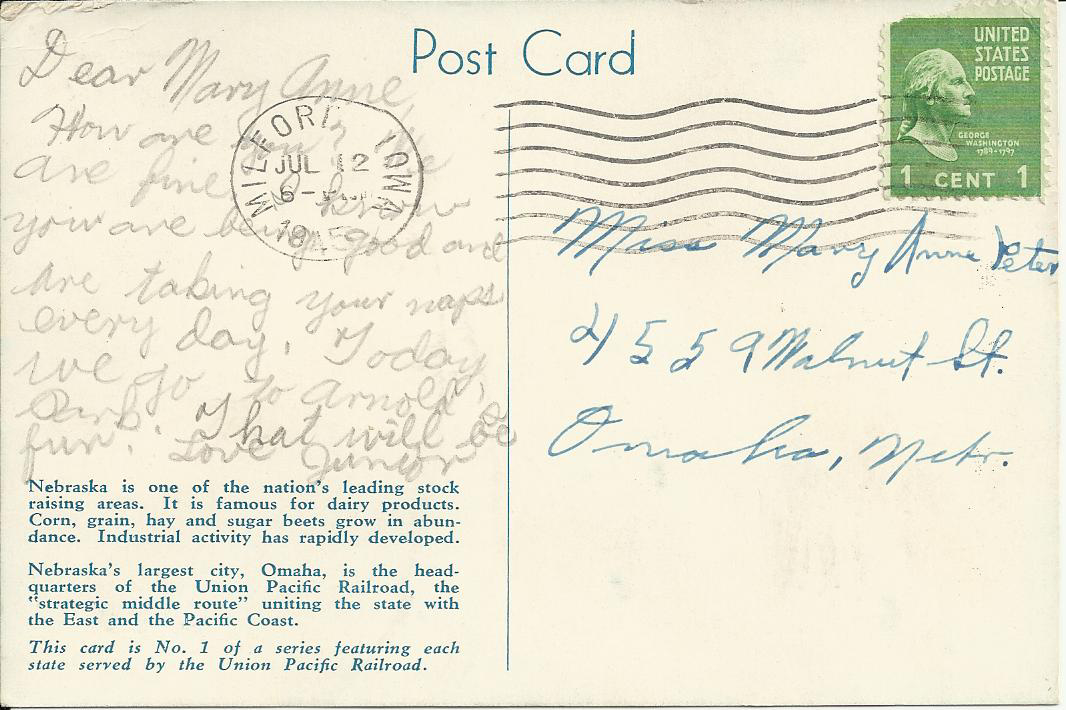 Post Card
UNITED
STATES
POSTAGE
GEORGE
WASHINGTON
1789-1797
1 CENT 1
MILFORD IOWA
JUL 12
6-
19
Dear Mary Anne,
How are you? We
are fine. I know
you are being good and
are taking your naps
every day. Today
we go to Arnold's
Park. That will be
fun. Love Junior
Miss Mary Anne Peter
4559 Walnut St.
Omaha, Nebr.
Nebraska is one of the nation's leading stock
raising areas. It is famous for dairy products.
Corn, grain, hay and sugar beets grow in abun-
dance. Industrial activity has rapidly developed.
Nebraska's largest city, Omaha, is the head-
quarters of the Union Pacific Railroad, the
"strategic middle route" uniting the state with
the East and the Pacific Coast.
This card is No. 1 of a series featuring each
state served by the Union Pacific Railroad.